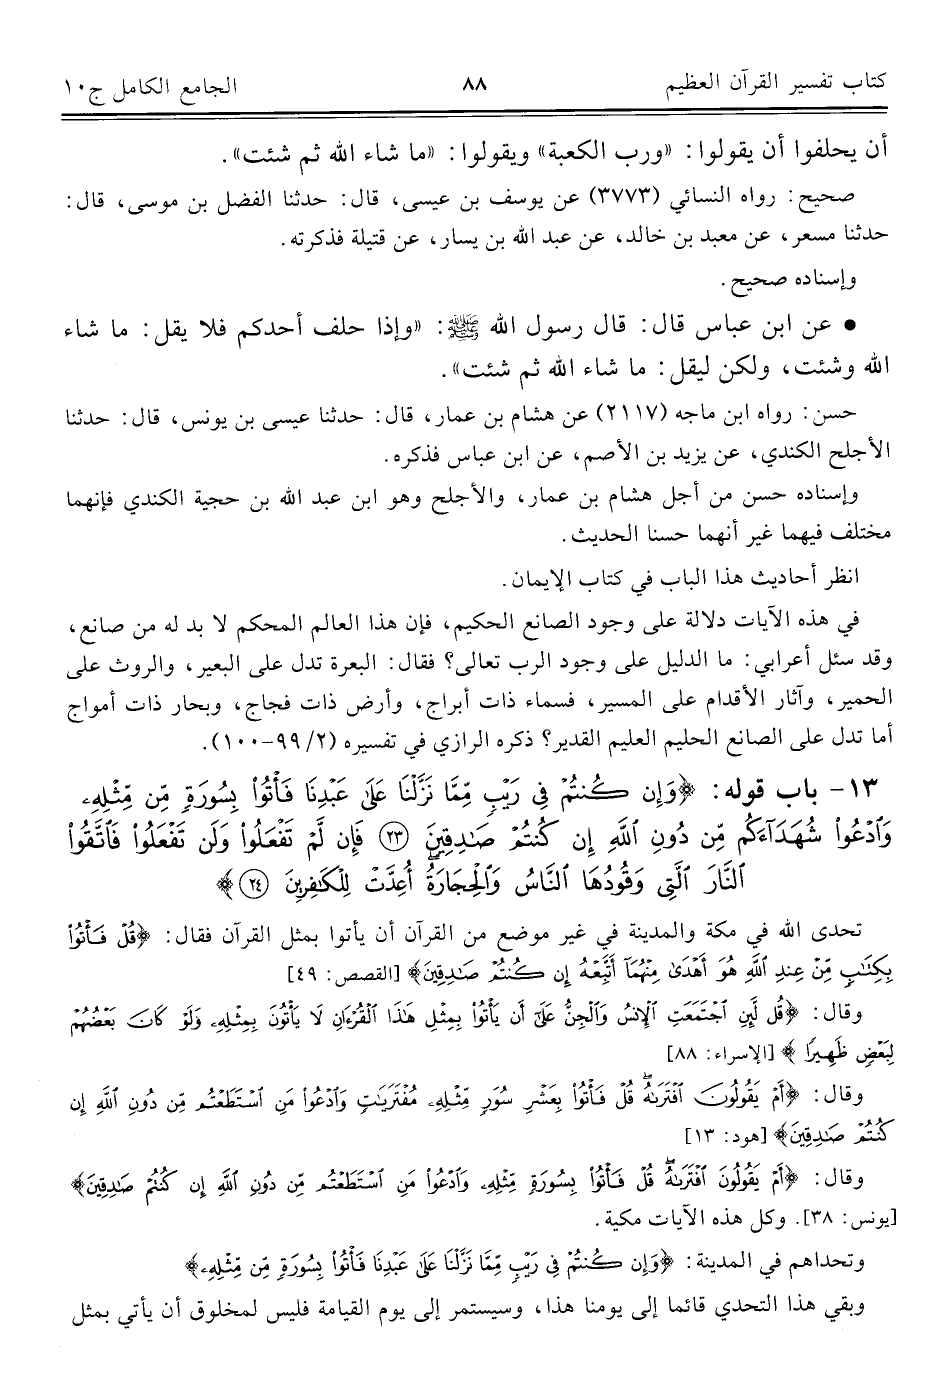 كتاب تفسير القرآن العظيم ٨٨ الجامع الكامل ج١٠
أن يحلفوا أن يقولوا: «ورب الكعبة» ويقولوا: «ما شاء الله ثم شئت».
صحيح: رواه النسائي (٣٧٧٣) عن يوسف بن عيسى، قال: حدثنا الفضل بن موسى، قال:
حدثنا مسعر، عن معبد بن خالد، عن عبد الله بن يسار، عن قتيلة فذكرته.
وإسناده صحيح.
• عن ابن عباس قال: قال رسول الله ﷺ: «وإذا حلف أحدكم فلا يقل: ما شاء
الله وشئت، ولكن ليقل: ما شاء الله ثم شئت».
حسن: رواه ابن ماجه (٢١١٧) عن هشام بن عمار، قال: حدثنا عيسى بن يونس، قال: حدثنا
الأجلح الكندي، عن يزيد بن الأصم، عن ابن عباس فذكره.
وإسناده حسن من أجل هشام بن عمار، والأجلح وهو ابن عبد الله بن حجية الكندي فإنهما
مختلف فيهما غير أنهما حسنا الحديث.
انظر أحاديث هذا الباب في كتاب الإيمان.
في هذه الآيات دلالة على وجود الصانع الحكيم، فإن هذا العالم المحكم لا بد له من صانع،
وقد سئل أعرابي: ما الدليل على وجود الرب تعالى؟ فقال: البعرة تدل على البعير، والروث على
الحمير، وآثار الأقدام على المسير، فسماء ذات أبراج، وأرض ذات فجاج، وبحار ذات أمواج
أما تدل على الصانع الحليم العليم القدير؟ ذكره الرازي في تفسيره (٢/ ٩٩-١٠٠).
١٣- باب قوله: ﴿وَإِن كُنتُمْ فِى رَيْبٍ مِّمَّا نَزَّلْنَا عَلَىٰ عَبْدِنَا فَأْتُوا۟ بِسُورَةٍ مِّن مِّثْلِهِۦ
وَٱدْعُوا۟ شُهَدَآءَكُم مِّن دُونِ ٱللَّهِ إِن كُنتُمْ صَـٰدِقِينَ ﴿٢٣﴾ فَإِن لَّمْ تَفْعَلُوا۟ وَلَن تَفْعَلُوا۟ فَٱتَّقُوا۟
ٱلنَّارَ ٱلَّتِى وَقُودُهَا ٱلنَّاسُ وَٱلْحِجَارَةُ ۖ أُعِدَّتْ لِلْكَـٰفِرِينَ ﴿٢٤﴾ ﴾
تحدى الله في مكة والمدينة في غير موضع من القرآن أن يأتوا بمثل القرآن فقال: ﴿قُلْ فَأْتُوا۟
بِكِتَـٰبٍ مِّنْ عِندِ ٱللَّهِ هُوَ أَهْدَىٰ مِنْهُمَآ أَتَّبِعْهُ إِن كُنتُمْ صَـٰدِقِينَ﴾ [القصص: ٤٩]
وقال: ﴿قُل لَّئِنِ ٱجْتَمَعَتِ ٱلْإِنسُ وَٱلْجِنُّ عَلَىٰٓ أَن يَأْتُوا۟ بِمِثْلِ هَـٰذَا ٱلْقُرْءَانِ لَا يَأْتُونَ بِمِثْلِهِۦ وَلَوْ كَانَ بَعْضُهُمْ
لِبَعْضٍ ظَهِيرًا ﴾ [الإسراء: ٨٨]
وقال: ﴿أَمْ يَقُولُونَ ٱفْتَرَىٰهُ ۖ قُلْ فَأْتُوا۟ بِعَشْرِ سُوَرٍ مِّثْلِهِۦ مُفْتَرَيَـٰتٍ وَٱدْعُوا۟ مَنِ ٱسْتَطَعْتُم مِّن دُونِ ٱللَّهِ إِن
كُنتُمْ صَـٰدِقِينَ﴾ [هود: ١٣]
وقال: ﴿أَمْ يَقُولُونَ ٱفْتَرَىٰهُ ۖ قُلْ فَأْتُوا۟ بِسُورَةٍ مِّثْلِهِۦ وَٱدْعُوا۟ مَنِ ٱسْتَطَعْتُم مِّن دُونِ ٱللَّهِ إِن كُنتُمْ صَـٰدِقِينَ﴾
[يونس: ٣٨]. وكل هذه الآيات مكية.
وتحداهم في المدينة: ﴿وَإِن كُنتُمْ فِى رَيْبٍ مِّمَّا نَزَّلْنَا عَلَىٰ عَبْدِنَا فَأْتُوا۟ بِسُورَةٍ مِّن مِّثْلِهِۦ﴾
وبقي هذا التحدي قائما إلى يومنا هذا، وسيستمر إلى يوم القيامة فليس لمخلوق أن يأتي بمثل